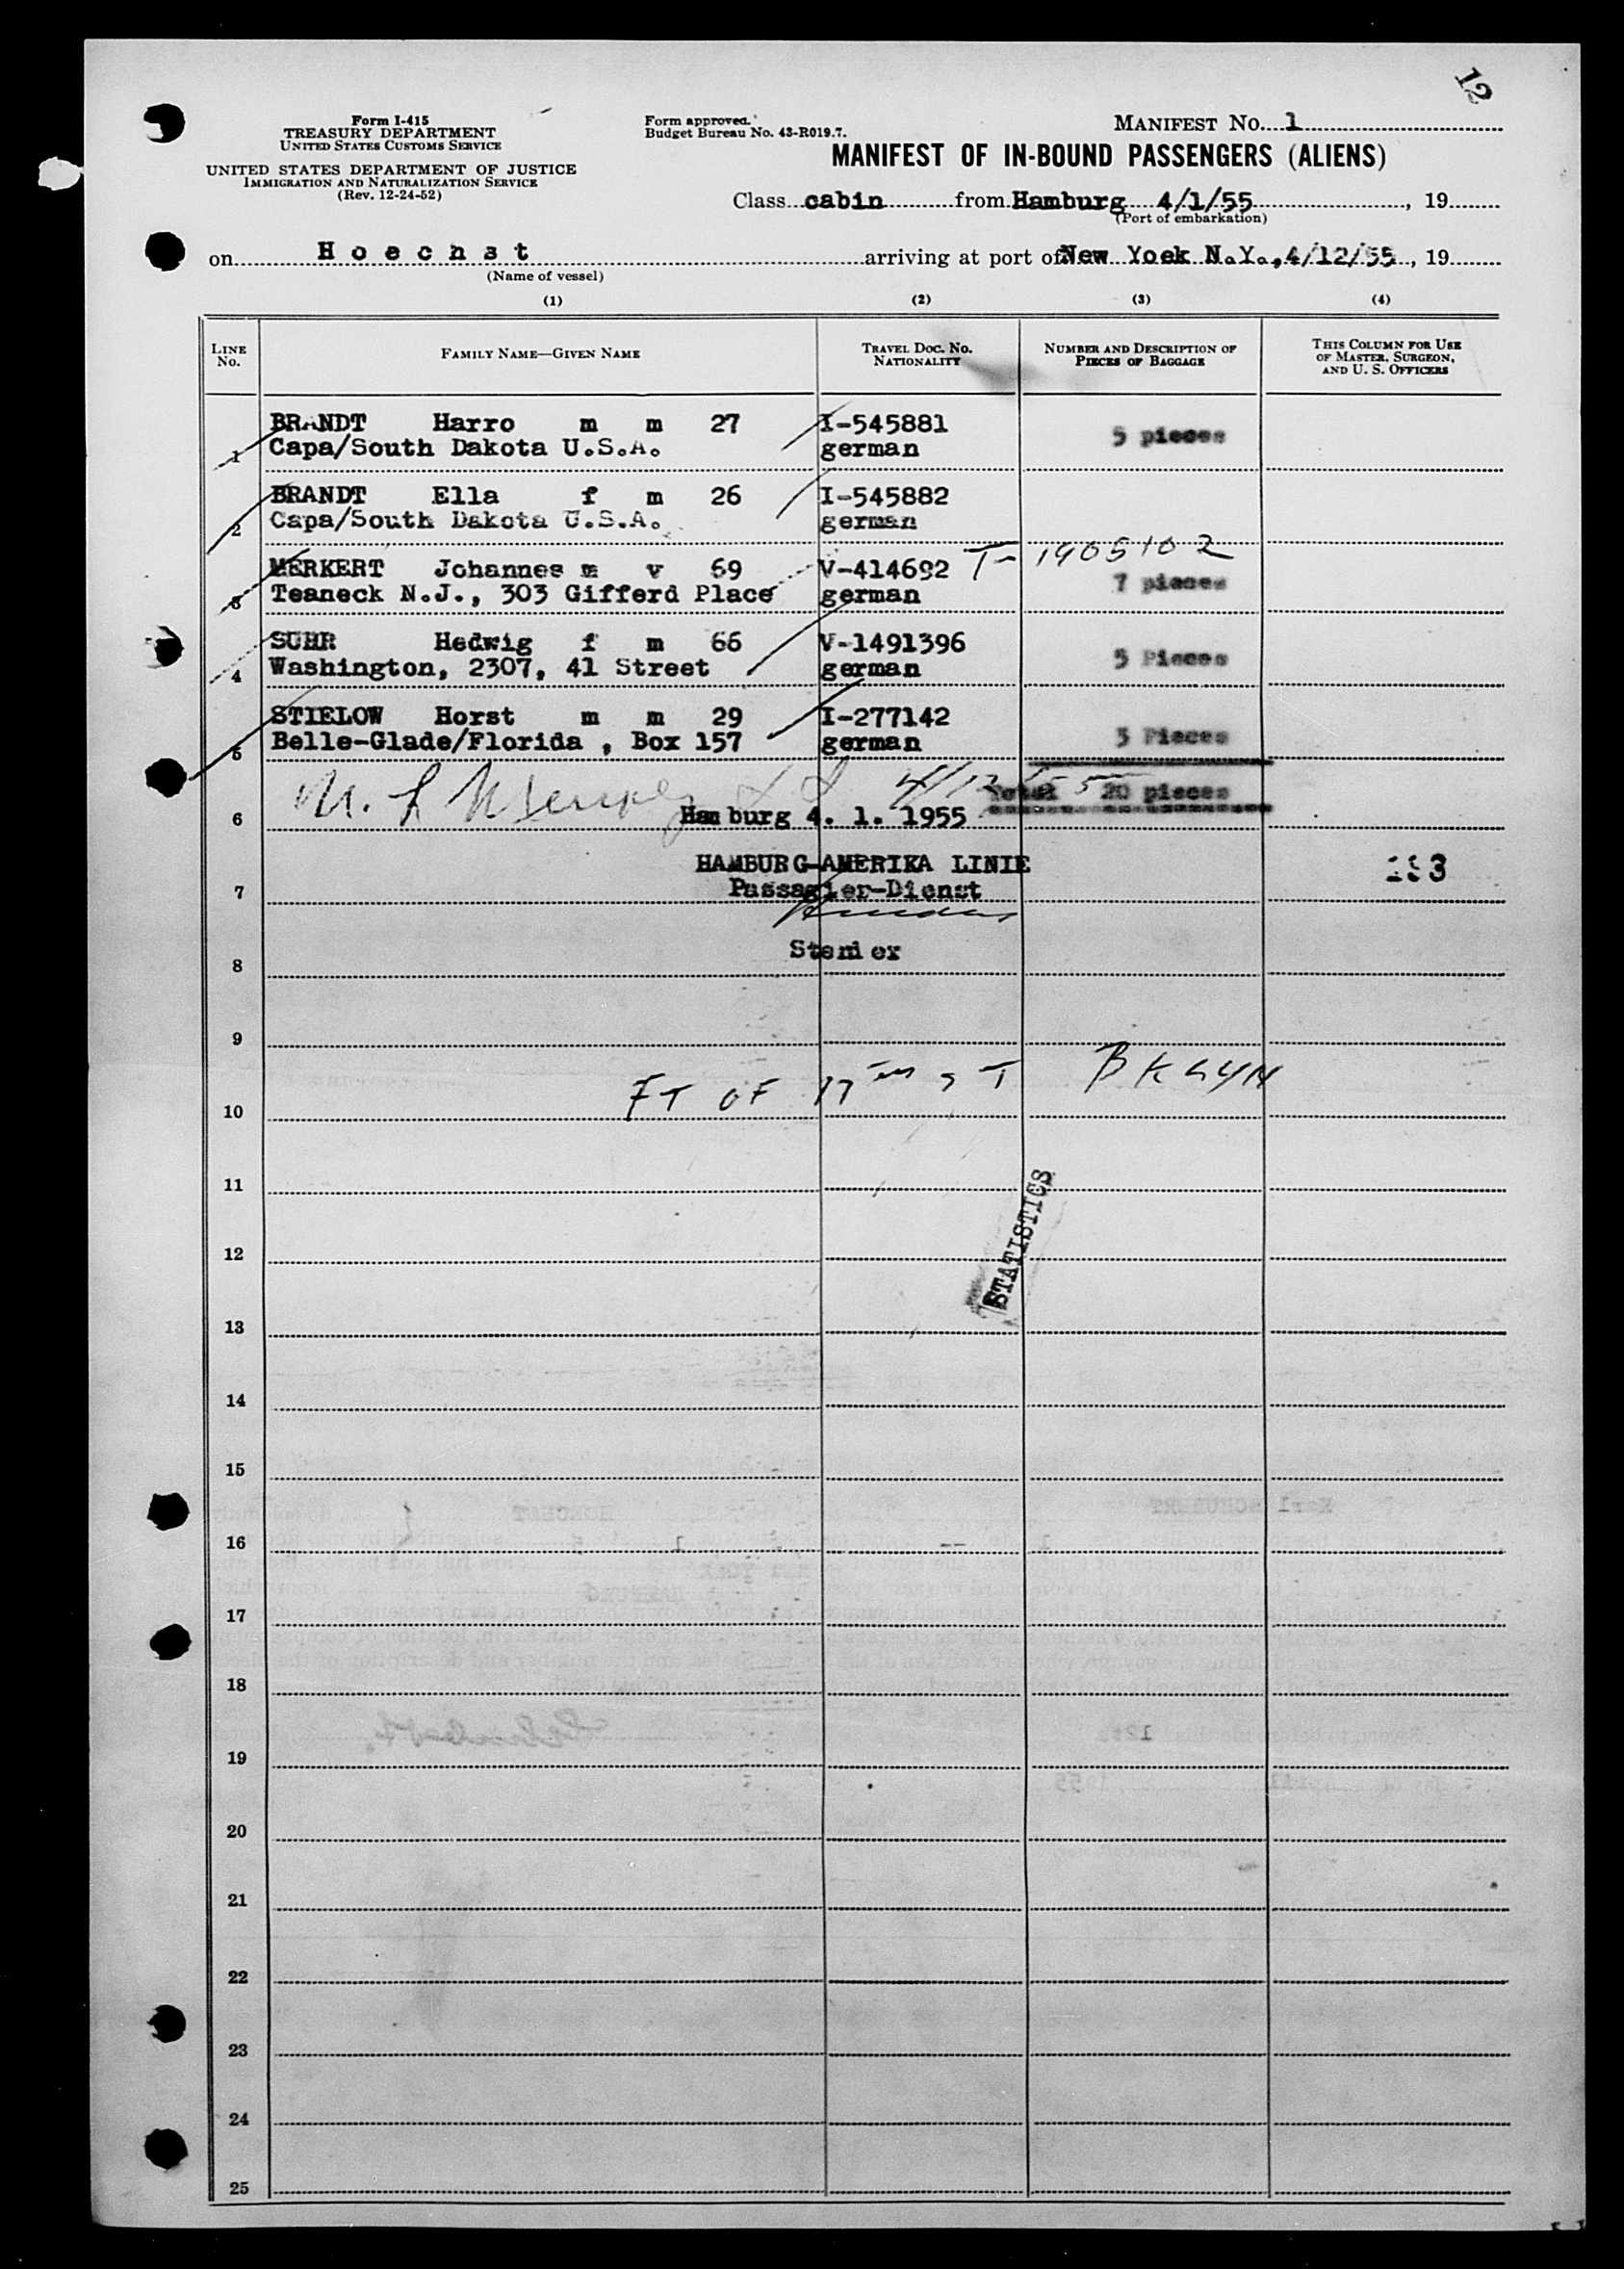 12
Form I-415
TREASURY DEPARTMENT
UNITED STATES CUSTOMS SERVICE
UNITED STATES DEPARTMENT OF JUSTICE
IMMIGRATION AND NATURALIZATION SERVICE
(Rev. 12-24-52)
Form approved.
Budget Bureau No. 43-R019.7.
MANIFEST NO. 1
MANIFEST OF IN-BOUND PASSENGERS (ALIENS)
Class cabin from Hamburg 4/1/55, 19
(Port of embarkation)
on Hoechst arriving at port of New Yoek N.Y., 4/12/55, 19
(Name of vessel)
(1) (2) (3) (4)
LINE No. FAMILY NAME—GIVEN NAME TRAVEL DOC. NO. NATIONALITY NUMBER AND DESCRIPTION OF PIECES OF BAGGAGE THIS COLUMN FOR USE OF MASTER, SURGEON, AND U. S. OFFICERS
BRANDT Harro m m 27 I-545881 5 pieces
1 Capa/South Dakota U.S.A. german
BRANDT Ella f m 26 I-545882
2 Capa/South Dakota U.S.A. german
T-1905102
MERKERT Johannes m v 69 V-414692 7 pieces
3 Teaneck N.J., 303 Gifferd Place german
SUHR Hedwig f m 66 V-1491396 5 Pieces
4 Washington, 2307, 41 Street german
STIELOW Horst m m 29 I-277142 3 Pieces
5 Belle-Glade/Florida , Box 157 german
4/12/55
Total 20 pieces
6 Hamburg 4. 1. 1955
HAMBURG-AMERIKA LINIE
7 Passagier-Dienst
8
9
FT OF 17TH ST BKLYN
10
11
STATISTICS
12
13
14
15
16
17
18
19
20
21
22
23
24
25